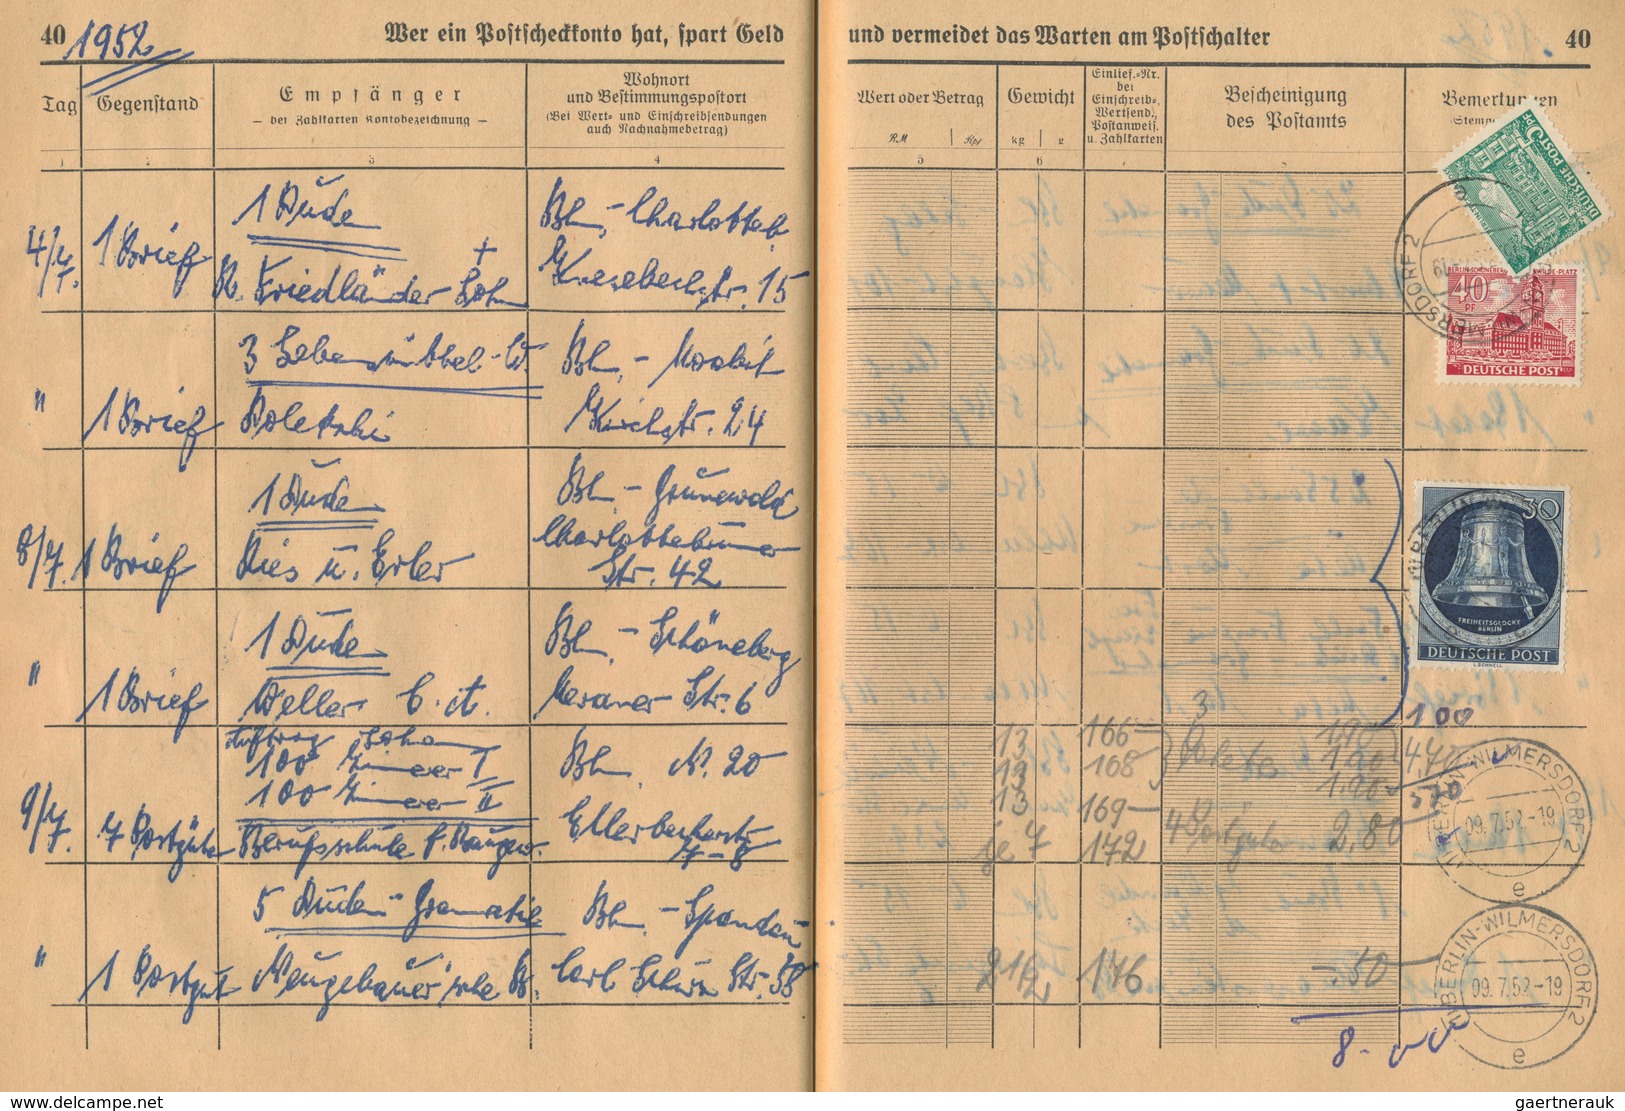 40 1952 Wer ein Postscheckkonto hat, spart Geld
und vermeidet das Warten am Postschalter 40
Tag
Gegenstand
Empfänger
— bei Zahlkarten Kontobezeichnung —
Wohnort
und Bestimmungspostort
(Bei Wert- und Einschreibsendungen
auch Nachnahmebetrag)
Wert oder Betrag
RM Rpf
Gewicht
kg g
Einlief.-Nr.
bei
Einschreib-,
Wertsend.,
Postanweis.
u. Zahlkarten
Bescheinigung
des Postamts
Bemerkungen
3 4 5 6
1 Dude Bln.-Charlottenb.
4/7. 1 Brief R. Friedländer + Sohn Knesebeckstr. 15
3 Bln.-Moabit
" 1 Brief Kirchstr. 24
1 Dude Bln.-Grunewald
Charlottenbrunner
8/7. 1 Brief Ries u. Erler Str. 42
1 Dude Bln.-Schöneberg
" 1 Brief Weller Meraner Str. 6
Auftrag
100 Zimmerer I
100 Zimmerer II
Bln. N. 20
9/7. 7 Postgüter Berufsschule f. Baugew. Ellerbeckerstr.
7-8
5 Duden-Gramatik Bln.-Spandau
" 1 Postgut Carl Schurz Str. 38
13 166 3 Pakete 1.90
13 168 1.90 4.70
13 169 1.90 5 70
je 7 172 4 Postgüter 2.80
1 00
2 1/2 176 -.50
8.-
5 PF
DEUTSCHE POST
BERLIN-SCHÖNEBERG
40
PF
DEUTSCHE POST
30
FREIHEITSGLOCKE
BERLIN
DEUTSCHE POST
L. SCHNELL
BERLIN-WILMERSDORF 2
09.7.52-19
e
BERLIN-WILMERSDORF 2
09.7.52-19
e
www.delcampe.net
gaertnerauk